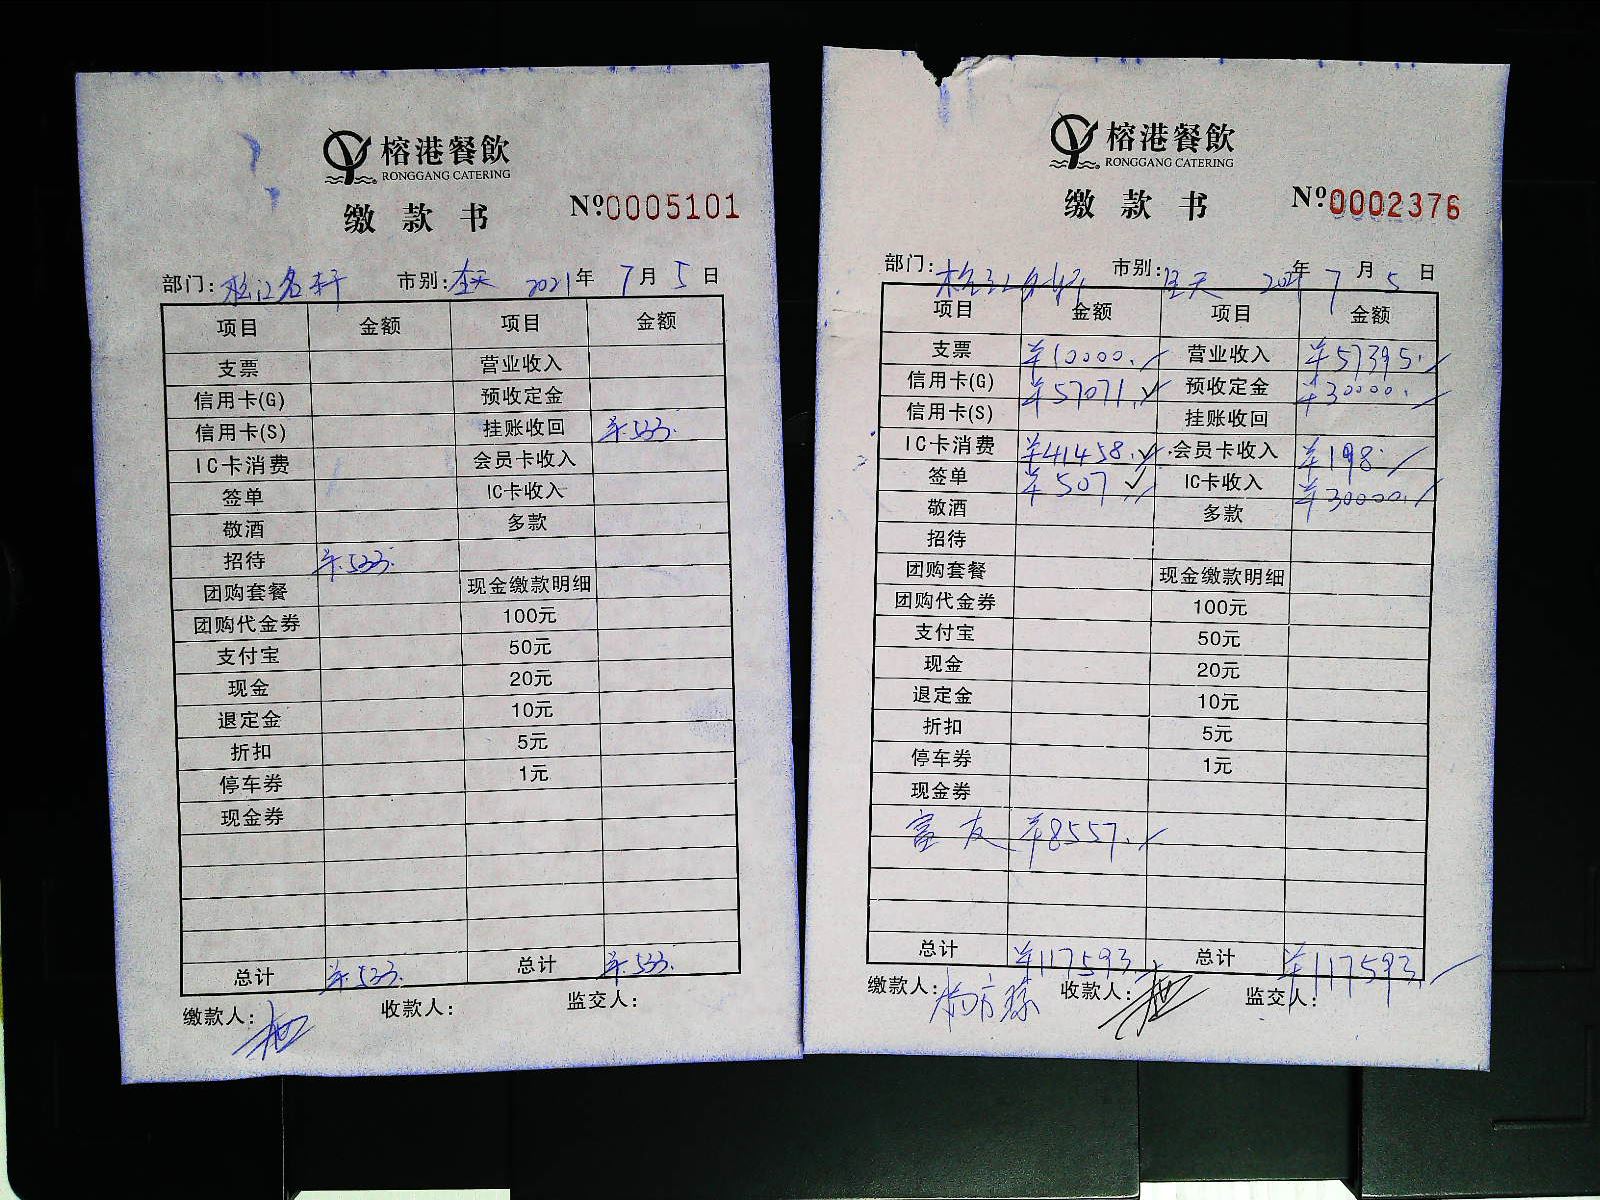 榕港餐飲
RONGGANG CATERING
缴款书
№0005101
部门：松江名轩 市别：全天 2021年7月5日
项目 金额 项目 金额
支票 营业收入
信用卡(G) 预收定金
信用卡(S) 挂账收回 ¥533.
IC卡消费 会员卡收入
签单 IC卡收入
敬酒 多款
招待 ¥533.
团购套餐 现金缴款明细
团购代金券 100元
支付宝 50元
现金 20元
退定金 10元
折扣 5元
停车券 1元
现金券
总计 ¥533. 总计 ¥533.
缴款人： 收款人： 监交人：
榕港餐飲
RONGGANG CATERING
缴款书
№0002376
部门：松江名轩 市别：全天 2021年7月5日
项目 金额 项目 金额
支票 ¥10000. 营业收入 ¥57395.
信用卡(G) ¥57071. 预收定金 ¥30000.
信用卡(S) 挂账收回
IC卡消费 ¥41458. 会员卡收入 ¥198.
签单 ¥507 IC卡收入 ¥30000.
敬酒 多款
招待
团购套餐 现金缴款明细
团购代金券 100元
支付宝 50元
现金 20元
退定金 10元
折扣 5元
停车券 1元
现金券
富友 ¥8557.
总计 ¥117593 总计 ¥117593.
缴款人： 收款人： 监交人：